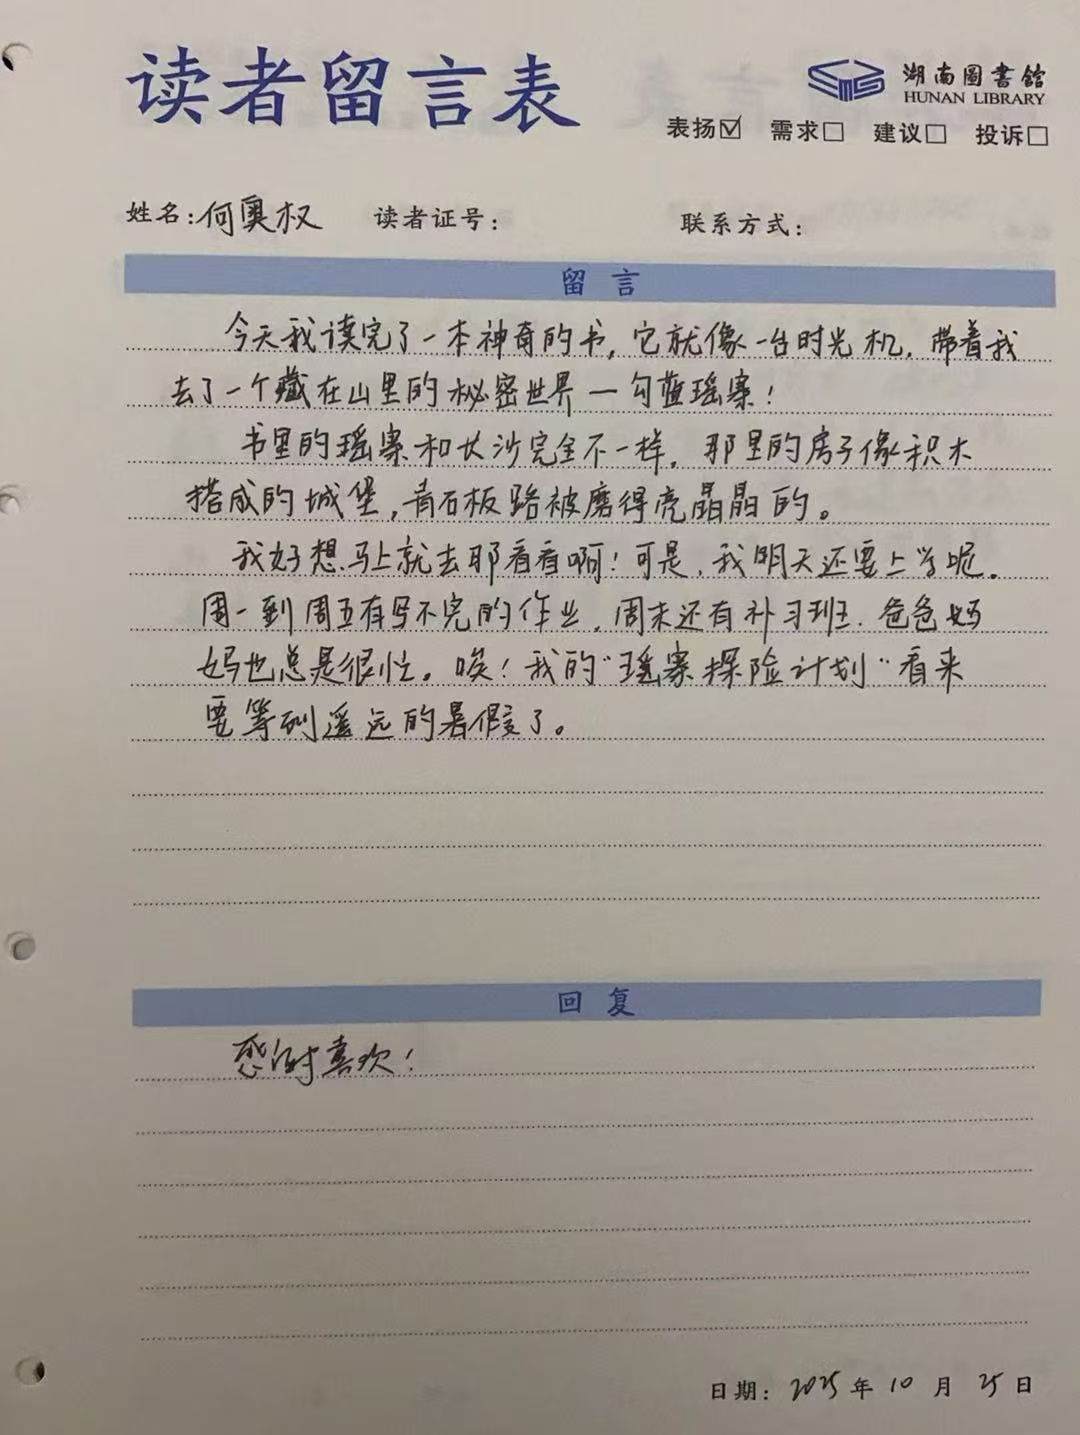 读者留言表
湖南圖書館
HUNAN LIBRARY
表扬☑ 需求□ 建议□ 投诉□
姓名:何奥权 读者证号: 联系方式:
留言
今天我读完了一本神奇的书,它就像一台时光机,带着我
去了一个藏在山里的秘密世界一勾蓝瑶寨!
书里的瑶寨和长沙完全不一样,那里的房子像积木
搭成的城堡,青石板路被磨得亮晶晶的。
我好想马上就去那看看啊!可是,我明天还要上学呢。
周一到周五有写不完的作业,周末还有补习班.爸爸妈
妈也总是很忙。唉!我的“瑶寨探险计划”看来
要等到遥远的暑假了。
回复
感谢喜欢!
日期: 2025 年 10 月 25 日